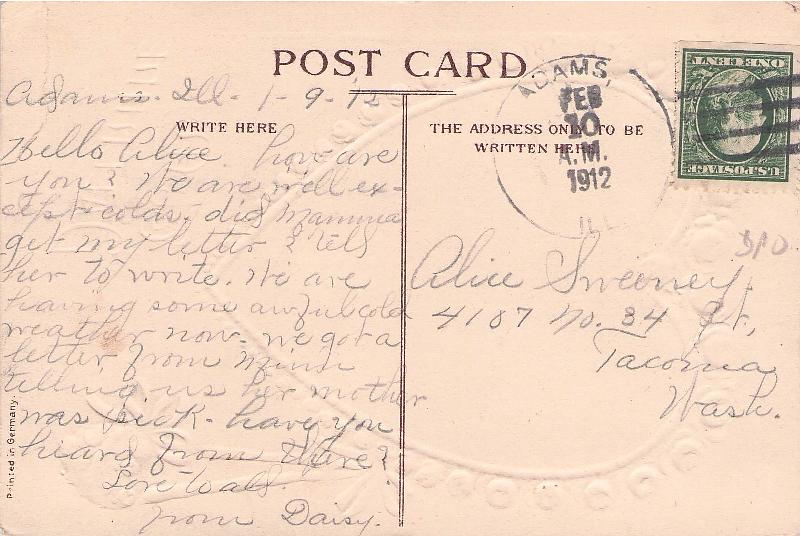 POST CARD
Adams. Ill. 1-9-12
WRITE HERE
Hello Alice. how are
you? We are well ex-
cept colds. did mamma
get my letter? tell
her to write. We are
having some awful cold
weather now. we got a
letter from
telling us her mother
was sick. have you
heard from there?
Love to all.
from Daisy.
THE ADDRESS ONLY TO BE
WRITTEN HERE
ADAMS,
FEB
10
A.M.
1912
ILL
U.S. POSTAGE
ONE CENT
Alice Sweeney.
4187 No. 34 St.,
Tacoma
Wash.
Printed in Germany.